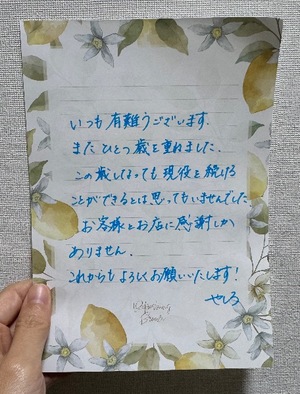 いつも有難うございます.
またひとつ歳を重ねました.
この歳になっても現役を続ける
ことができるとは思ってもいませんでした.
お客様とお店に感謝しか
ありません.
これからもよろしくお願いいたします!
やしろ